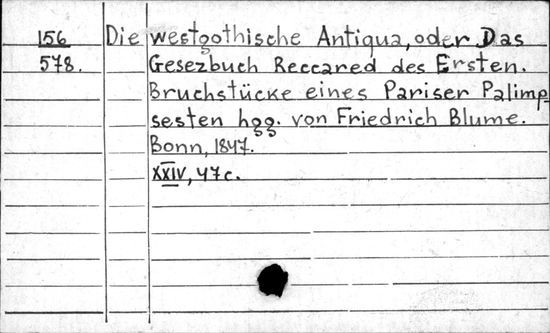 156 Die westgothische Antiqua, oder Das
578. Gesezbuch Reccared des Ersten.
Bruchstücke eines Pariser Palimp-
sesten hgg. von Friedrich Blume.
Bonn, 1847.
XXIV, 47 c.